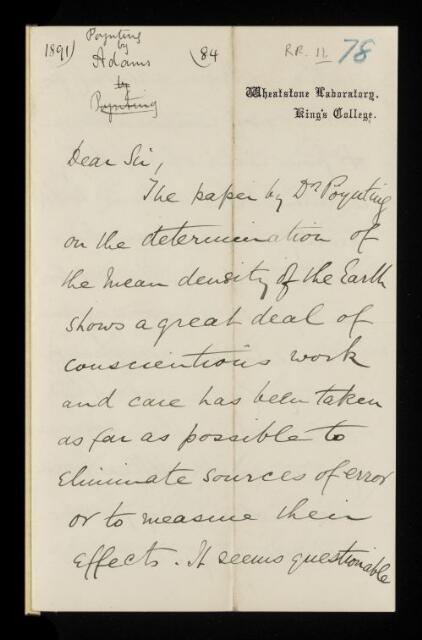 1891)
Poynting
by
Adams
by
Poynting
(84
RR. 11
78
Wheatstone Laboratory.
King's College.
Dear Sir,
The paper by Dr Poynting
on the determination of
the mean density of the Earth
shows a great deal of
conscientious work
and care has been taken
as far as possible to
eliminate sources of error
or to measure their
effects. It seems questionable